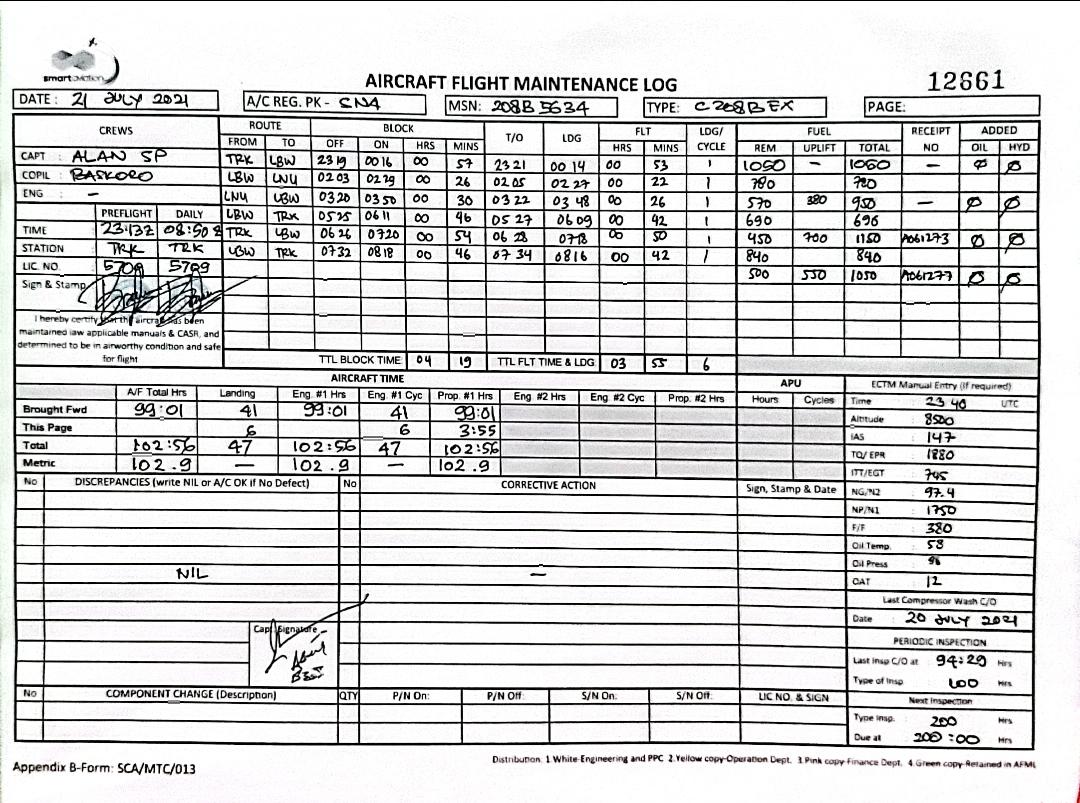 smart aviation
AIRCRAFT FLIGHT MAINTENANCE LOG
12661
DATE : 21 JULY 2021 A/C REG. PK - SNA MSN: 208B 5634 TYPE: C 208B EX PAGE:
CREWS ROUTE BLOCK T/O LDG FLT LDG/ CYCLE FUEL RECEIPT NO ADDED
FROM TO OFF ON HRS MINS HRS MINS REM UPLIFT TOTAL OIL HYD
CAPT : ALAN SP TRK LBW 2319 0016 00 57 2321 0014 00 53 1 1050 - 1050 - Ø Ø
COPIL : BASKORO LBW LNU 0203 0229 00 26 0205 0227 00 22 1 780 780
ENG : - LNU LBW 0320 0350 00 30 0322 0348 00 26 1 570 380 950 - Ø Ø
PREFLIGHT DAILY LBW TRK 0525 0611 00 46 0527 0609 00 42 1 690 690
TIME 23:13Z 08:50 TRK LBW 0626 0720 00 54 0628 0718 00 50 1 450 700 1150 A061273 Ø Ø
STATION TRK TRK LBW TRK 0732 0818 00 46 0734 0816 00 42 1 840 840
LIC. NO. 5709 5709 500 550 1050 A061277 Ø Ø
Sign & Stamp
I hereby certify that the aircraft has been
maintained iaw applicable manuals & CASR, and
determined to be in airworthy condition and safe
for flight
TTL BLOCK TIME: 04 19 TTL FLT TIME & LDG 03 55 6
AIRCRAFT TIME APU ECTM Manual Entry (if required)
A/F Total Hrs Landing Eng. #1 Hrs Eng. #1 Cyc Prop. #1 Hrs Eng. #2 Hrs Eng. #2 Cyc Prop. #2 Hrs Hours Cycles
Brought Fwd 99:01 41 99:01 41 99:01
This Page 6 6 3:55
Total 102:56 47 102:56 47 102:56
Metric 102.9 - 102.9 - 102.9
Time : 23 40 UTC
Altitude : 8500
IAS : 147
TQ/ EPR : 1880
ITT/EGT : 745
NG/N2 : 97.4
NP/N1 : 1750
F/F : 380
Oil Temp. : 58
Oil Press : 98
OAT : 12
Last Compressor Wash C/O
Date : 20 JULY 2021
PERIODIC INSPECTION
Last Insp C/O at : 94:29 Hrs
Type of Insp : 100 Hrs
Next Inspection
Type Insp. : 200 Hrs
Due at : 200:00 Hrs
No DISCREPANCIES (write NIL or A/C OK if No Defect) No CORRECTIVE ACTION Sign, Stamp & Date
NIL -
Capt Signature
No COMPONENT CHANGE (Description) QTY P/N On: P/N Off: S/N On: S/N Off: LIC NO. & SIGN
Appendix B-Form: SCA/MTC/013
Distribution: 1 White-Engineering and PPC 2.Yellow copy-Operation Dept. 3.Pink copy-Finance Dept. 4.Green copy-Retained in AFML